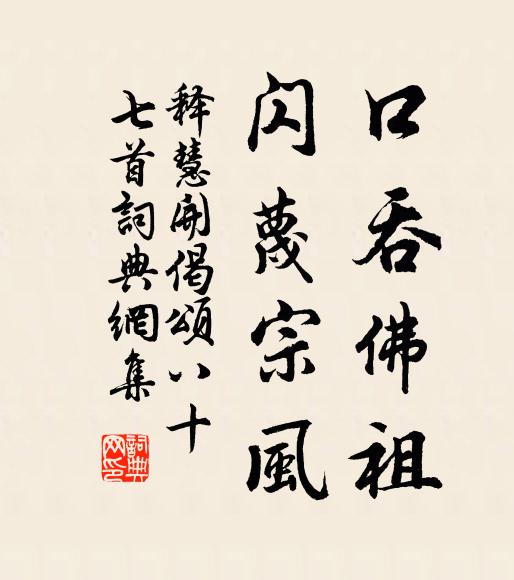 口吞佛祖
閃蔑宗風
释慧開偈頌八十
七首詞典網集
詞典
网印